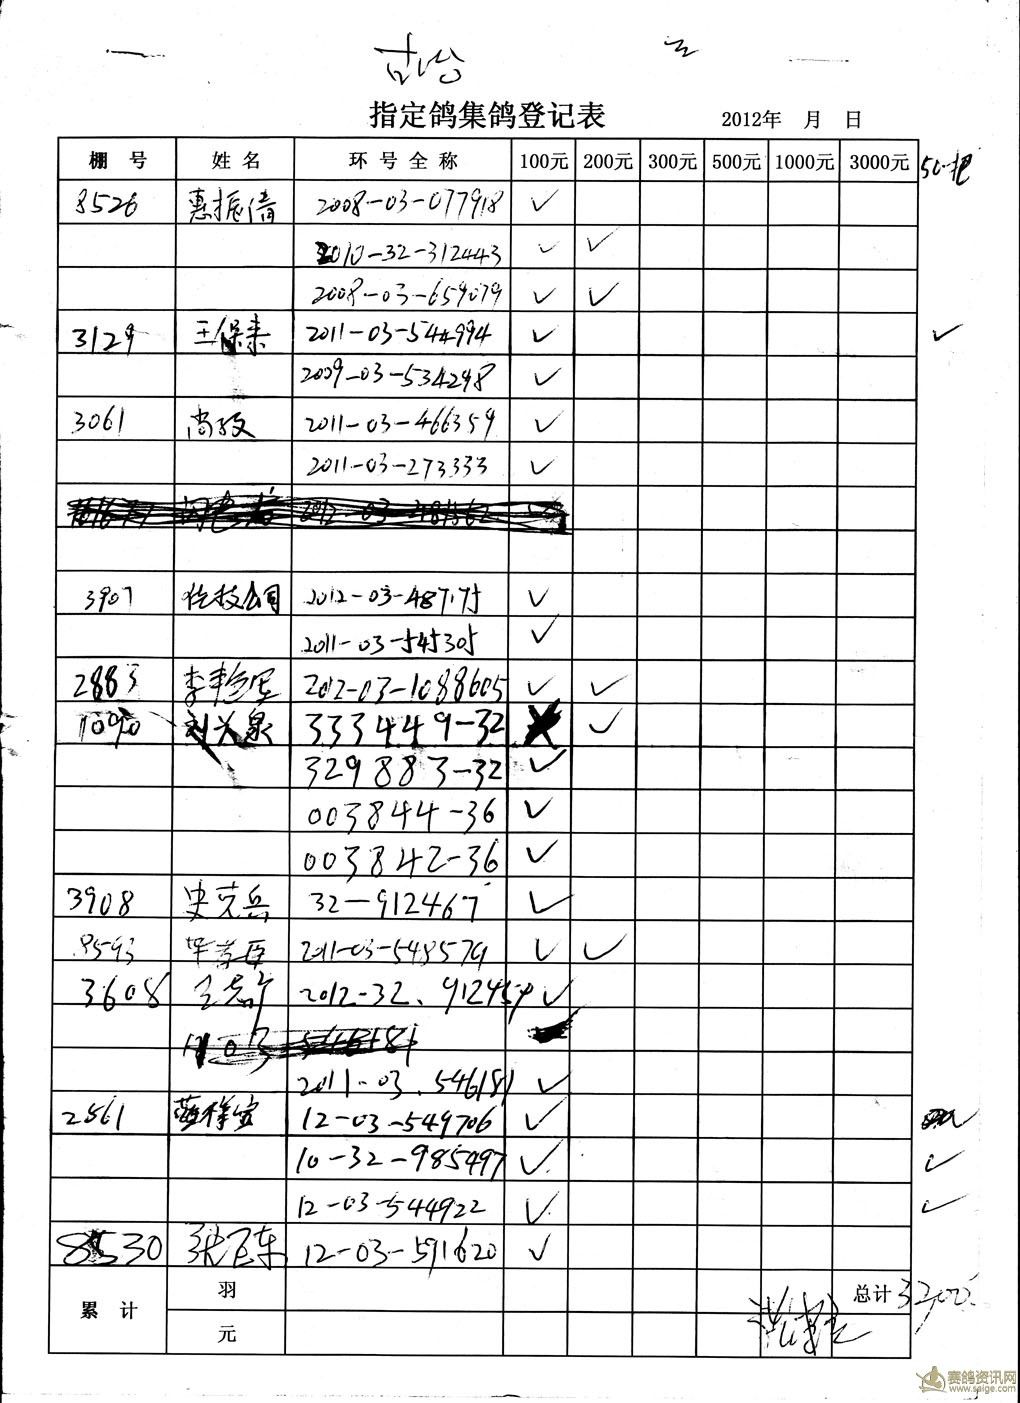 指定鸽集鸽登记表
2012年 月 日
棚 号 姓 名 环 号 全 称 100元 200元 300元 500元 1000元 3000元
8526 惠振倩 2008-03-077918 ✓
2010-32-312443 ✓ ✓
2008-03-659079 ✓ ✓
3129 王保来 2011-03-544994 ✓ ✓
2009-03-534298 ✓
3061 尚毅 2011-03-466359 ✓
2011-03-273333 ✓
3907 公司 2012-03-487175 ✓
2011-03-545305 ✓
2883 李 2012-03-1088605 ✓ ✓
1090 刘兴泉 333449-32 ✓
329883-32 ✓
003844-36 ✓
003842-36 ✓
3908 史克兵 32-912467 ✓
8593 2011-03-548579 ✓ ✓
3608 2012-32.912454 ✓
2011-03.546181 ✓
2561 12-03-549706 ✓
10-32-985497 ✓ ✓
12-03-544922 ✓ ✓
8530 张飞东 12-03-591620 ✓
累 计 羽 总计 3200.
元
赛鸽资讯网
www.saige.com